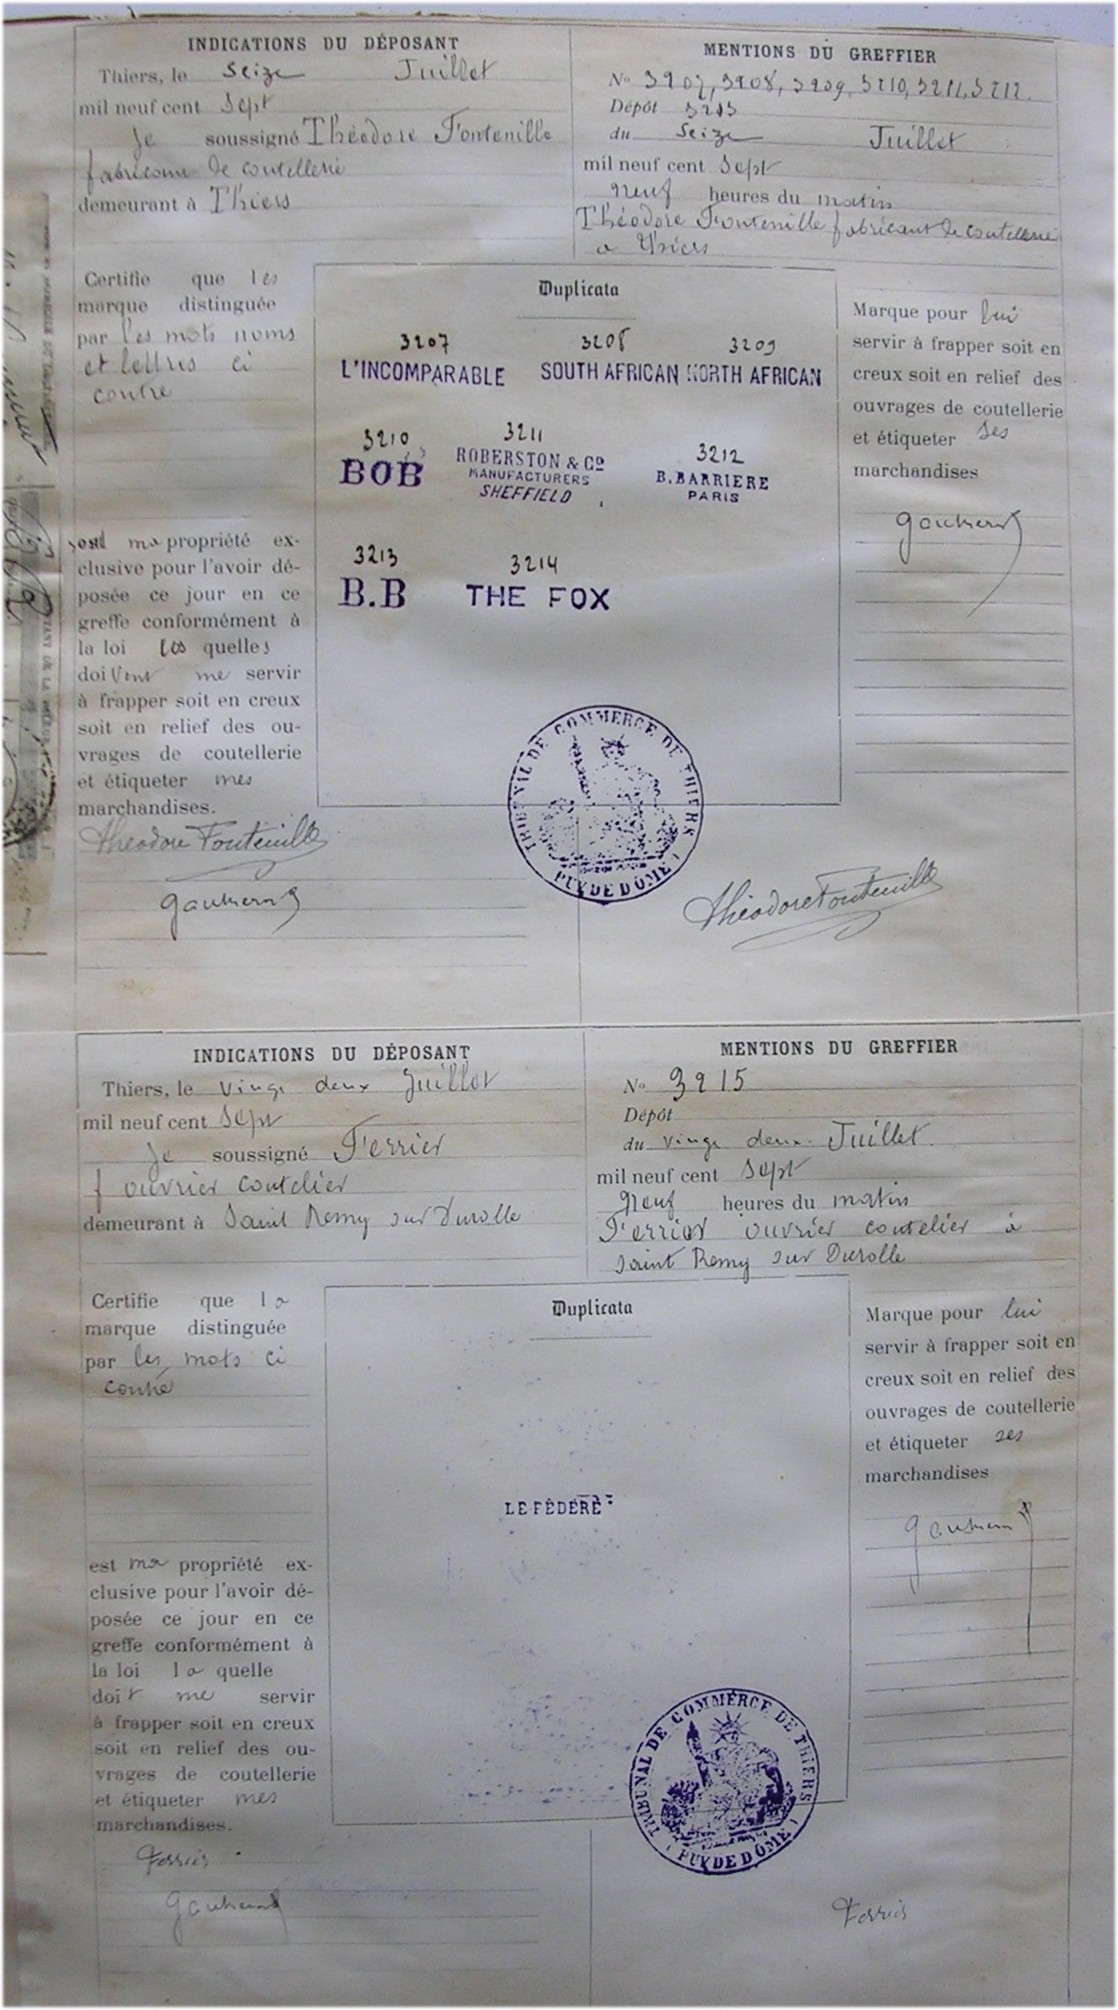 INDICATIONS DU DÉPOSANT
Thiers, le Seize Juillet
mil neuf cent Sept
Je soussigné Théodore Fontenille
fabricant de coutellerie
demeurant à Thiers
MENTIONS DU GREFFIER
No 3207, 3208, 3209, 3210, 3211, 3212.
Dépôt 3213
du Seize Juillet
mil neuf cent Sept
Neuf heures du matin
Théodore Fontenille fabricant de coutellerie
a Thiers
Certifie que les
marque distinguée
par les mots noms
et lettres ci
contre
sont ma propriété ex-
clusive pour l'avoir dé-
posée ce jour en ce
greffe conformément à
la loi les quelles
doivent me servir
à frapper soit en creux
soit en relief des ou-
vrages de coutellerie
et étiqueter mes
marchandises.
Theodore Fontenille
Duplicata
3207 3208 3209
L'INCOMPARABLE SOUTH AFRICAN NORTH AFRICAN
3210 3211 3212
BOB ROBERSTON & Co B. BARRIERE
MANUFACTURERS PARIS
SHEFFIELD
3213 3214
B.B THE FOX
TRIBUNAL DE COMMERCE DE THIERS
(PUY DE DÔME)
Marque pour lui
servir à frapper soit en
creux soit en relief des
ouvrages de coutellerie
et étiqueter ses
marchandises
Theodore Fontenille
INDICATIONS DU DÉPOSANT
Thiers, le vingt deux Juillet
mil neuf cent Sept
Je soussigné Ferrier
f ouvrier coutelier
demeurant à Saint Remy sur Durolle
MENTIONS DU GREFFIER
No 3215
Dépôt
du vingt deux Juillet
mil neuf cent Sept
Neuf heures du matin
Ferrier ouvrier coutelier à
Saint Remy sur Durolle
Certifie que la
marque distinguée
par les mots ci
contre
est ma propriété ex-
clusive pour l'avoir dé-
posée ce jour en ce
greffe conformément à
la loi la quelle
doit me servir
à frapper soit en creux
soit en relief des ou-
vrages de coutellerie
et étiqueter mes
marchandises.
Ferrier
Duplicata
LE FÉDÉRÉ
TRIBUNAL DE COMMERCE DE THIERS
(PUY DE DÔME)
Marque pour lui
servir à frapper soit en
creux soit en relief des
ouvrages de coutellerie
et étiqueter ses
marchandises
Ferrier